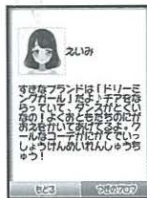 えいみ
すきなブランドは「ドリーミ
ングガール」だよ♪チアをな
らっていて、ダンスがとくい
なの！よくおともだちのにが
おえをかいてあげてるよ。ク
ールなコーデがにがてでいっ
しょうけんめいれんしゅうち
ゅう！
もどる
つぎのプロフ